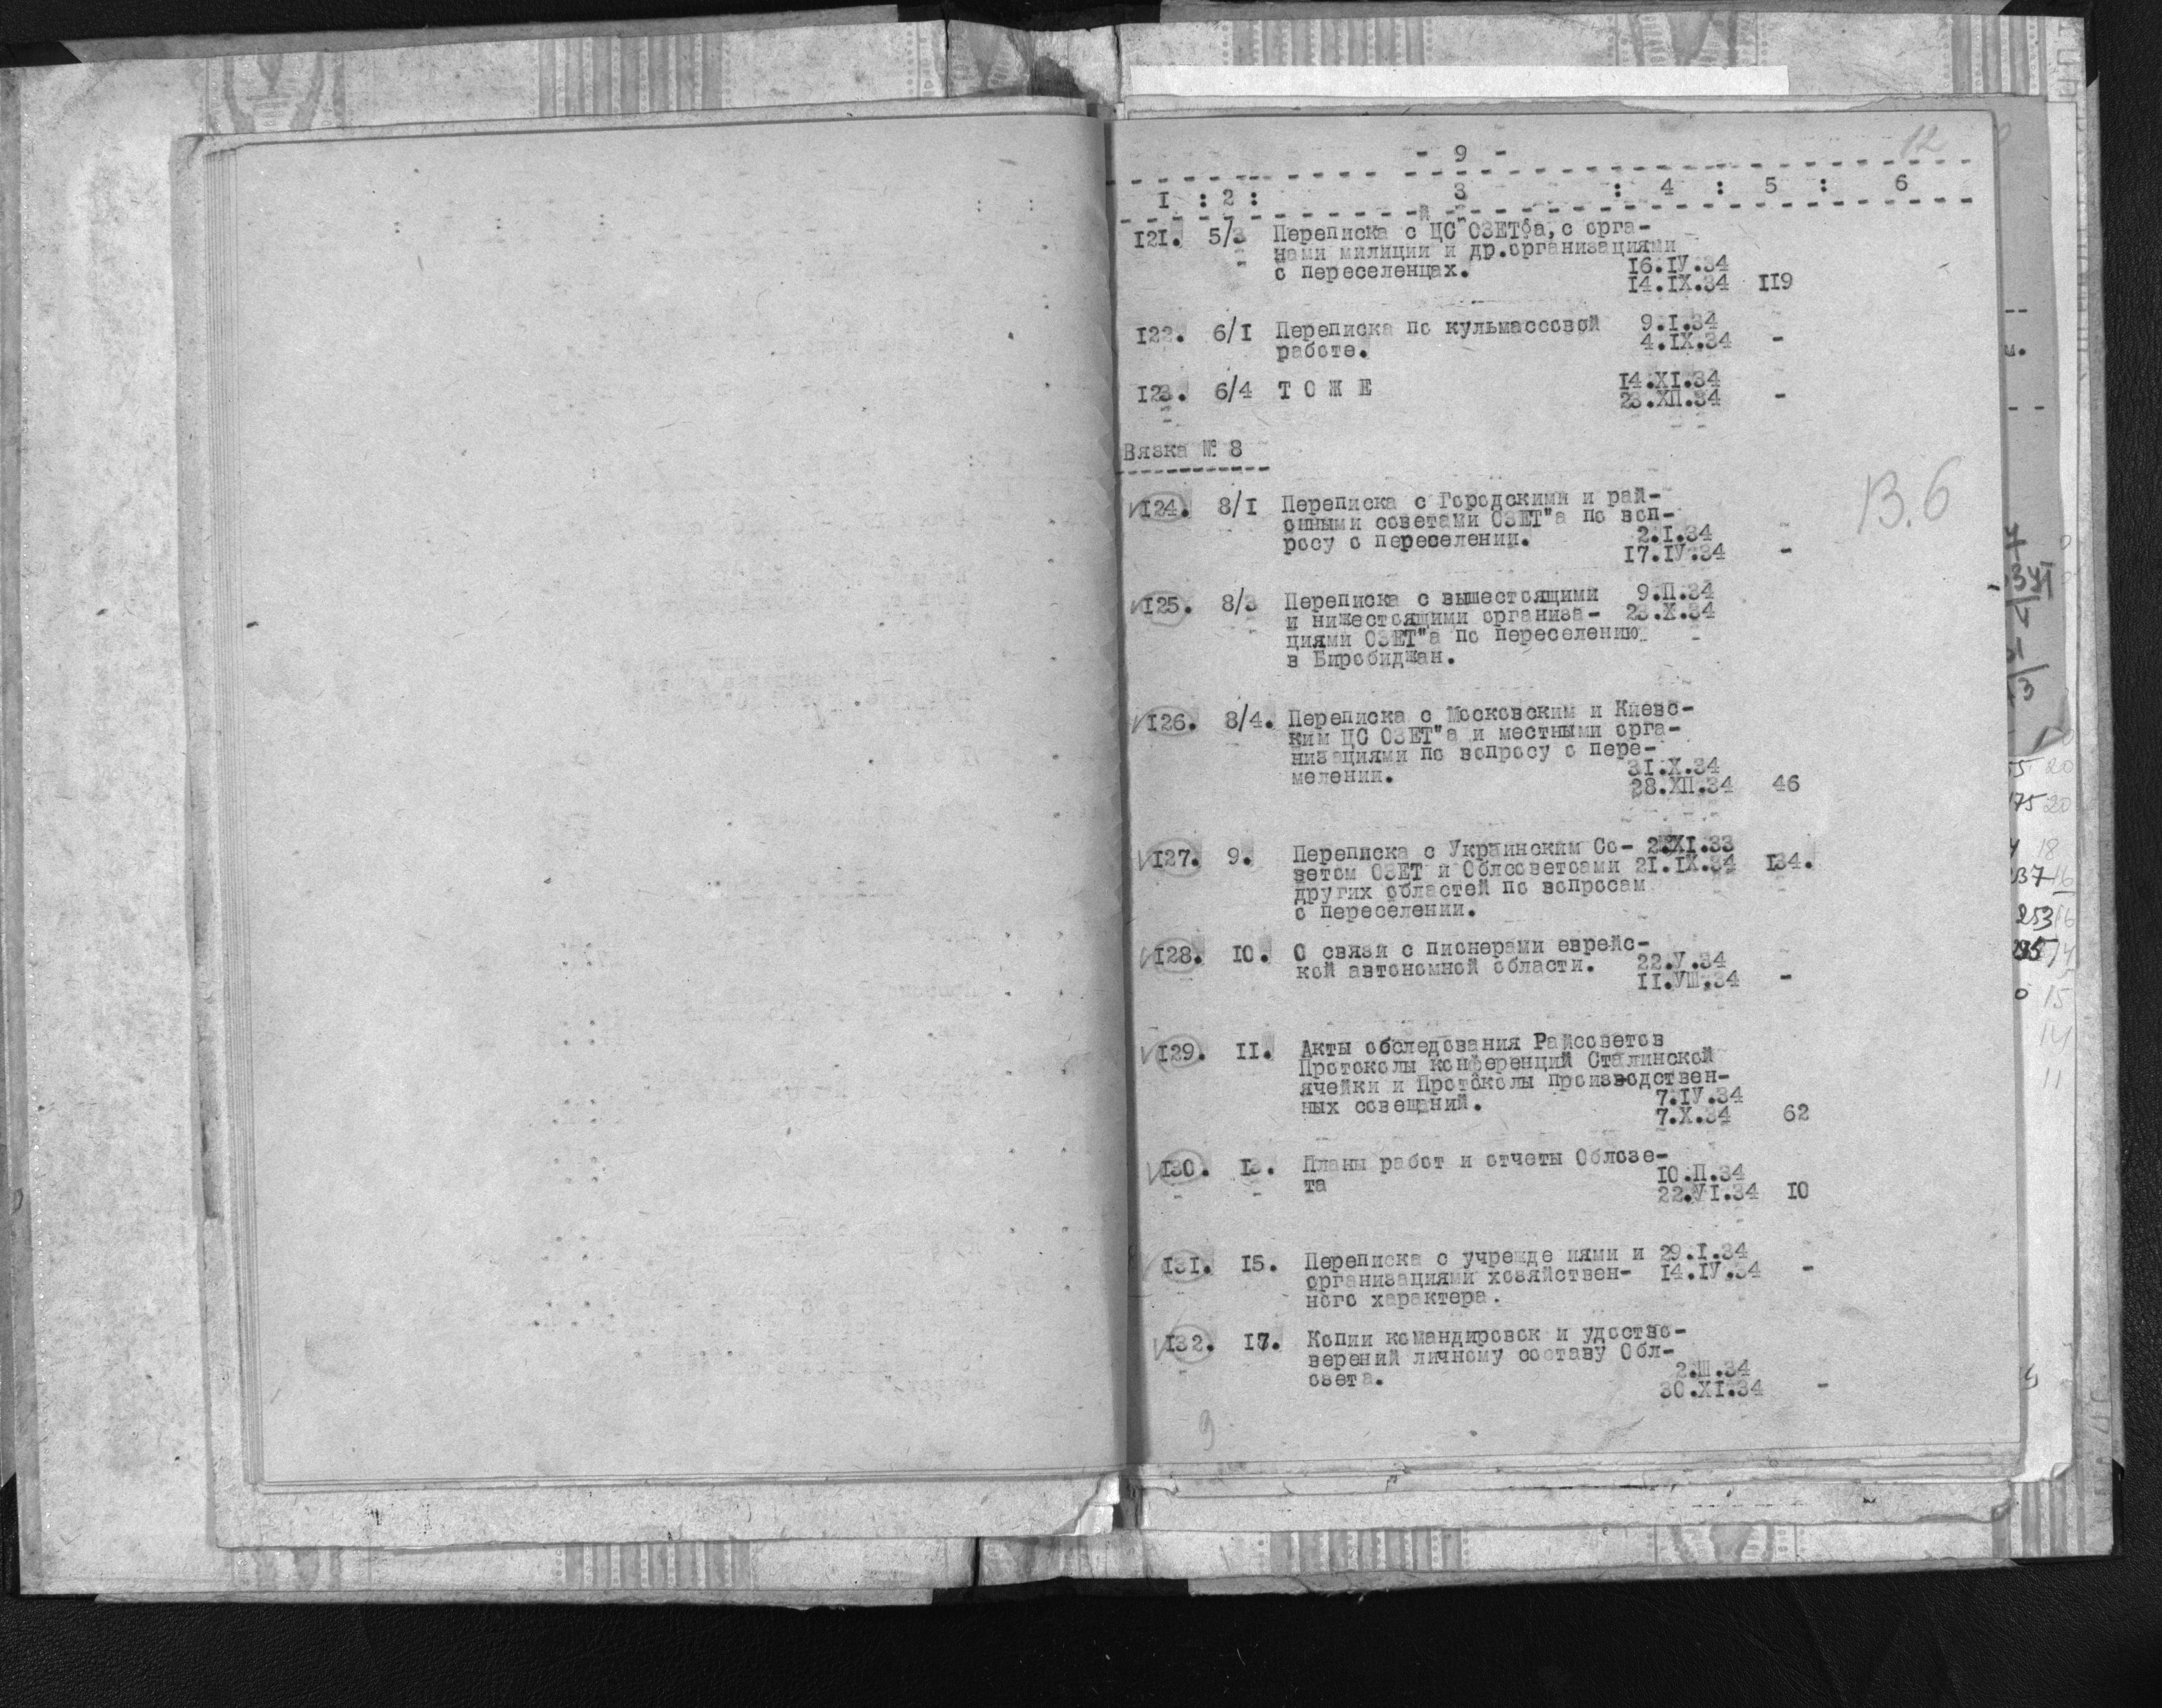 12
- 9 -
I : 2 : 3 : 4 : 5 : 6
121. 5/3 Переписка с ЦС ОЗЕТ"а, с орга-
нами милиции и др.организациями
о переселенцах. 16.IУ.34
14.IX.34 119
122. 6/I Переписка по культмассовой 9.I.34
работе. 4.IX.34 -
123. 6/4 Т О Ж Е 14.XI.34
23.XП.34 -
Вязка № 8
124. 8/I Переписка с Городскими и рай-
онными советами ОЗЕТ"а по воп-
росу о переселении. 2.I.34
17.IУ.34 -
13.6
125. 8/3 Переписка с вышестоящими 9.П.34
и нижестоящими организа- 23.X.34
циями ОЗЕТ"а по переселению -
в Биробиджан.
126. 8/4. Переписка с Московским и Киевс-
ким ЦС ОЗЕТ"а и местными орга-
низациями по вопросу о пере-
мелении. 31.X.34
28.XП.34 46
127. 9. Переписка с Украинским Со- 2.XI.33
ветом ОЗЕТ и Облсоветоами 21.IX.34 134.
других областей по вопросам
о переселении.
128. 10. О связи с пионерами еврейс-
кой автономной области. 22.У.34
II.УШ.34 -
129. II. Акты обследования Райсоветов
Протоколы конференций Сталинской
ячейки и Протоколы производствен-
ных совещаний. 7.IУ.34
7.X.34 62
130. 13. Планы работ и отчеты Облозе-
та 10.П.34
22.УI.34 10
131. 15. Переписка с учрежде иями и 29.I.34
организациями хозяйствен- 14.IУ.34 -
ного характера.
132. 17. Копии командировок и удоство-
верений личному составу Обл-
света. 2.Ш.34
30.XI.34 -
9